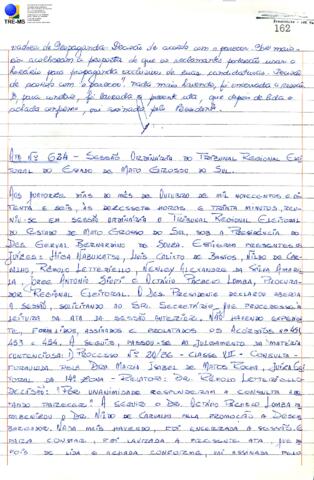 TRE-MS
162
horário para propaganda exclusiva de suas candidaturas. Decisão
de acordo com o parecer. Nada mais havendo, foi encerrada a sessão.
E para constar, foi lavrada a presente ata, que depois de lida e
achada conforme, vai assinada pelo Presidente.
ATA Nº 634 - SESSÃO ORDINÁRIA DO TRIBUNAL REGIONAL ELEI
TORAL DO ESTADO DE MATO GROSSO DO SUL.
DIAS DO MÊS DE OUTUBRO DE MIL NOVECENTOS E OI
TENTA E SEIS, ÀS DEZESSETE HORAS E TRINTA MINUTOS, REU
NIU-SE EM SESSÃO ORDINÁRIA O TRIBUNAL REGIONAL ELEITORAL
DO ESTADO DE MATO GROSSO DO SUL, SOB A PRESIDÊNCIA DO
DES. GERVAL BERNARDINO DE SOUZA. ESTIVERAM PRESENTES OS
JUÍZES: HIGA NABUKATSU, LUÍS CALIXTO DE BASTOS, NILDO DE CAR
VALHO, RÊMOLO LETTERIELLO, ALEXANDRE DA SILVA AMARAL
JORGE ANTONIO SIUFI E OCTÁVIO PACHECO LOMBA, PROCURA
DOR REGIONAL ELEITORAL. O DES. PRESIDENTE DECLAROU ABERTA
A SESSÃO, SOLICITANDO AO SR. SECRETÁRIO, QUE PROCEDESSE À
LEITURA DA ATA DA SESSÃO ANTERIOR. NÃO HAVENDO EXPEDIEN
TE, FORAM LIDOS, ASSINADOS E PUBLICADOS OS ACÓRDÃOS Nº
453 E 454. A SEGUIR, PASSOU-SE AO JULGAMENTO DA MATÉRIA
CONTENCIOSA: 1) PROCESSO Nº 20/86 - CLASSE VII - CONSULTA
FORMULADA PELA DRA MARIA ISABEL DE MATOS ROCHA, JUÍZA ELEI
TORAL DA 14ª ZONA - RELATOR: DR. RÊMOLO LETTERIELLO
DECISÃO: "POR UNANIMIDADE RESPONDERAM A CONSULTA
A SEGUIR O DR. OCTÁVIO PACHECO LOMBA PA
RABENIZOU O DR. NILDO DE CARVALHO PELA PROMOÇÃO A DESEM
BARGADOR. NADA MAIS HAVENDO, FOI ENCERRADA A SESSÃO. E
PARA CONSTAR, FOI LAVRADA A PRESENTE ATA, QUE DE
POIS DE LIDA E ACHADA CONFORME, VAI ASSINADA PELO